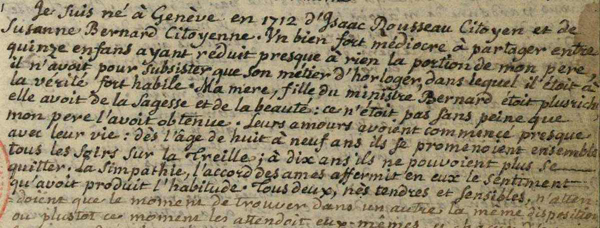 Je suis né à Genève en 1712 d'Isaac Rousseau Citoyen et de
Susanne Bernard Citoyenne. Un bien fort médiocre à partager entre
quinze enfans ayant réduit presque à rien la portion de mon pere,
il n'avoit pour subsister que son métier d'horloger, dans lequel il étoit à
la vérité fort habile. Ma mere, fille du ministre Bernard étoit plus riche
elle avoit de la sagesse et de la beauté: ce n'étoit pas sans peine que
mon pere l'avoit obtenue. Leurs amours avoient commencé presque
avec leur vie: dès l'âge de huit à neuf ans ils se promenoient ensemble
tous les soirs sur la Treille; à dix ans ils ne pouvoient plus se
quitter. La simpathie, l'accord des ames affermit en eux le sentiment
qu'avoit produit l'habitude. Tous deux, nés tendres et sensibles, n'atten-
doient que le moment de trouver dans un autre la même disposition
ou plustot ce moment les attendoit eux-mêmes, et